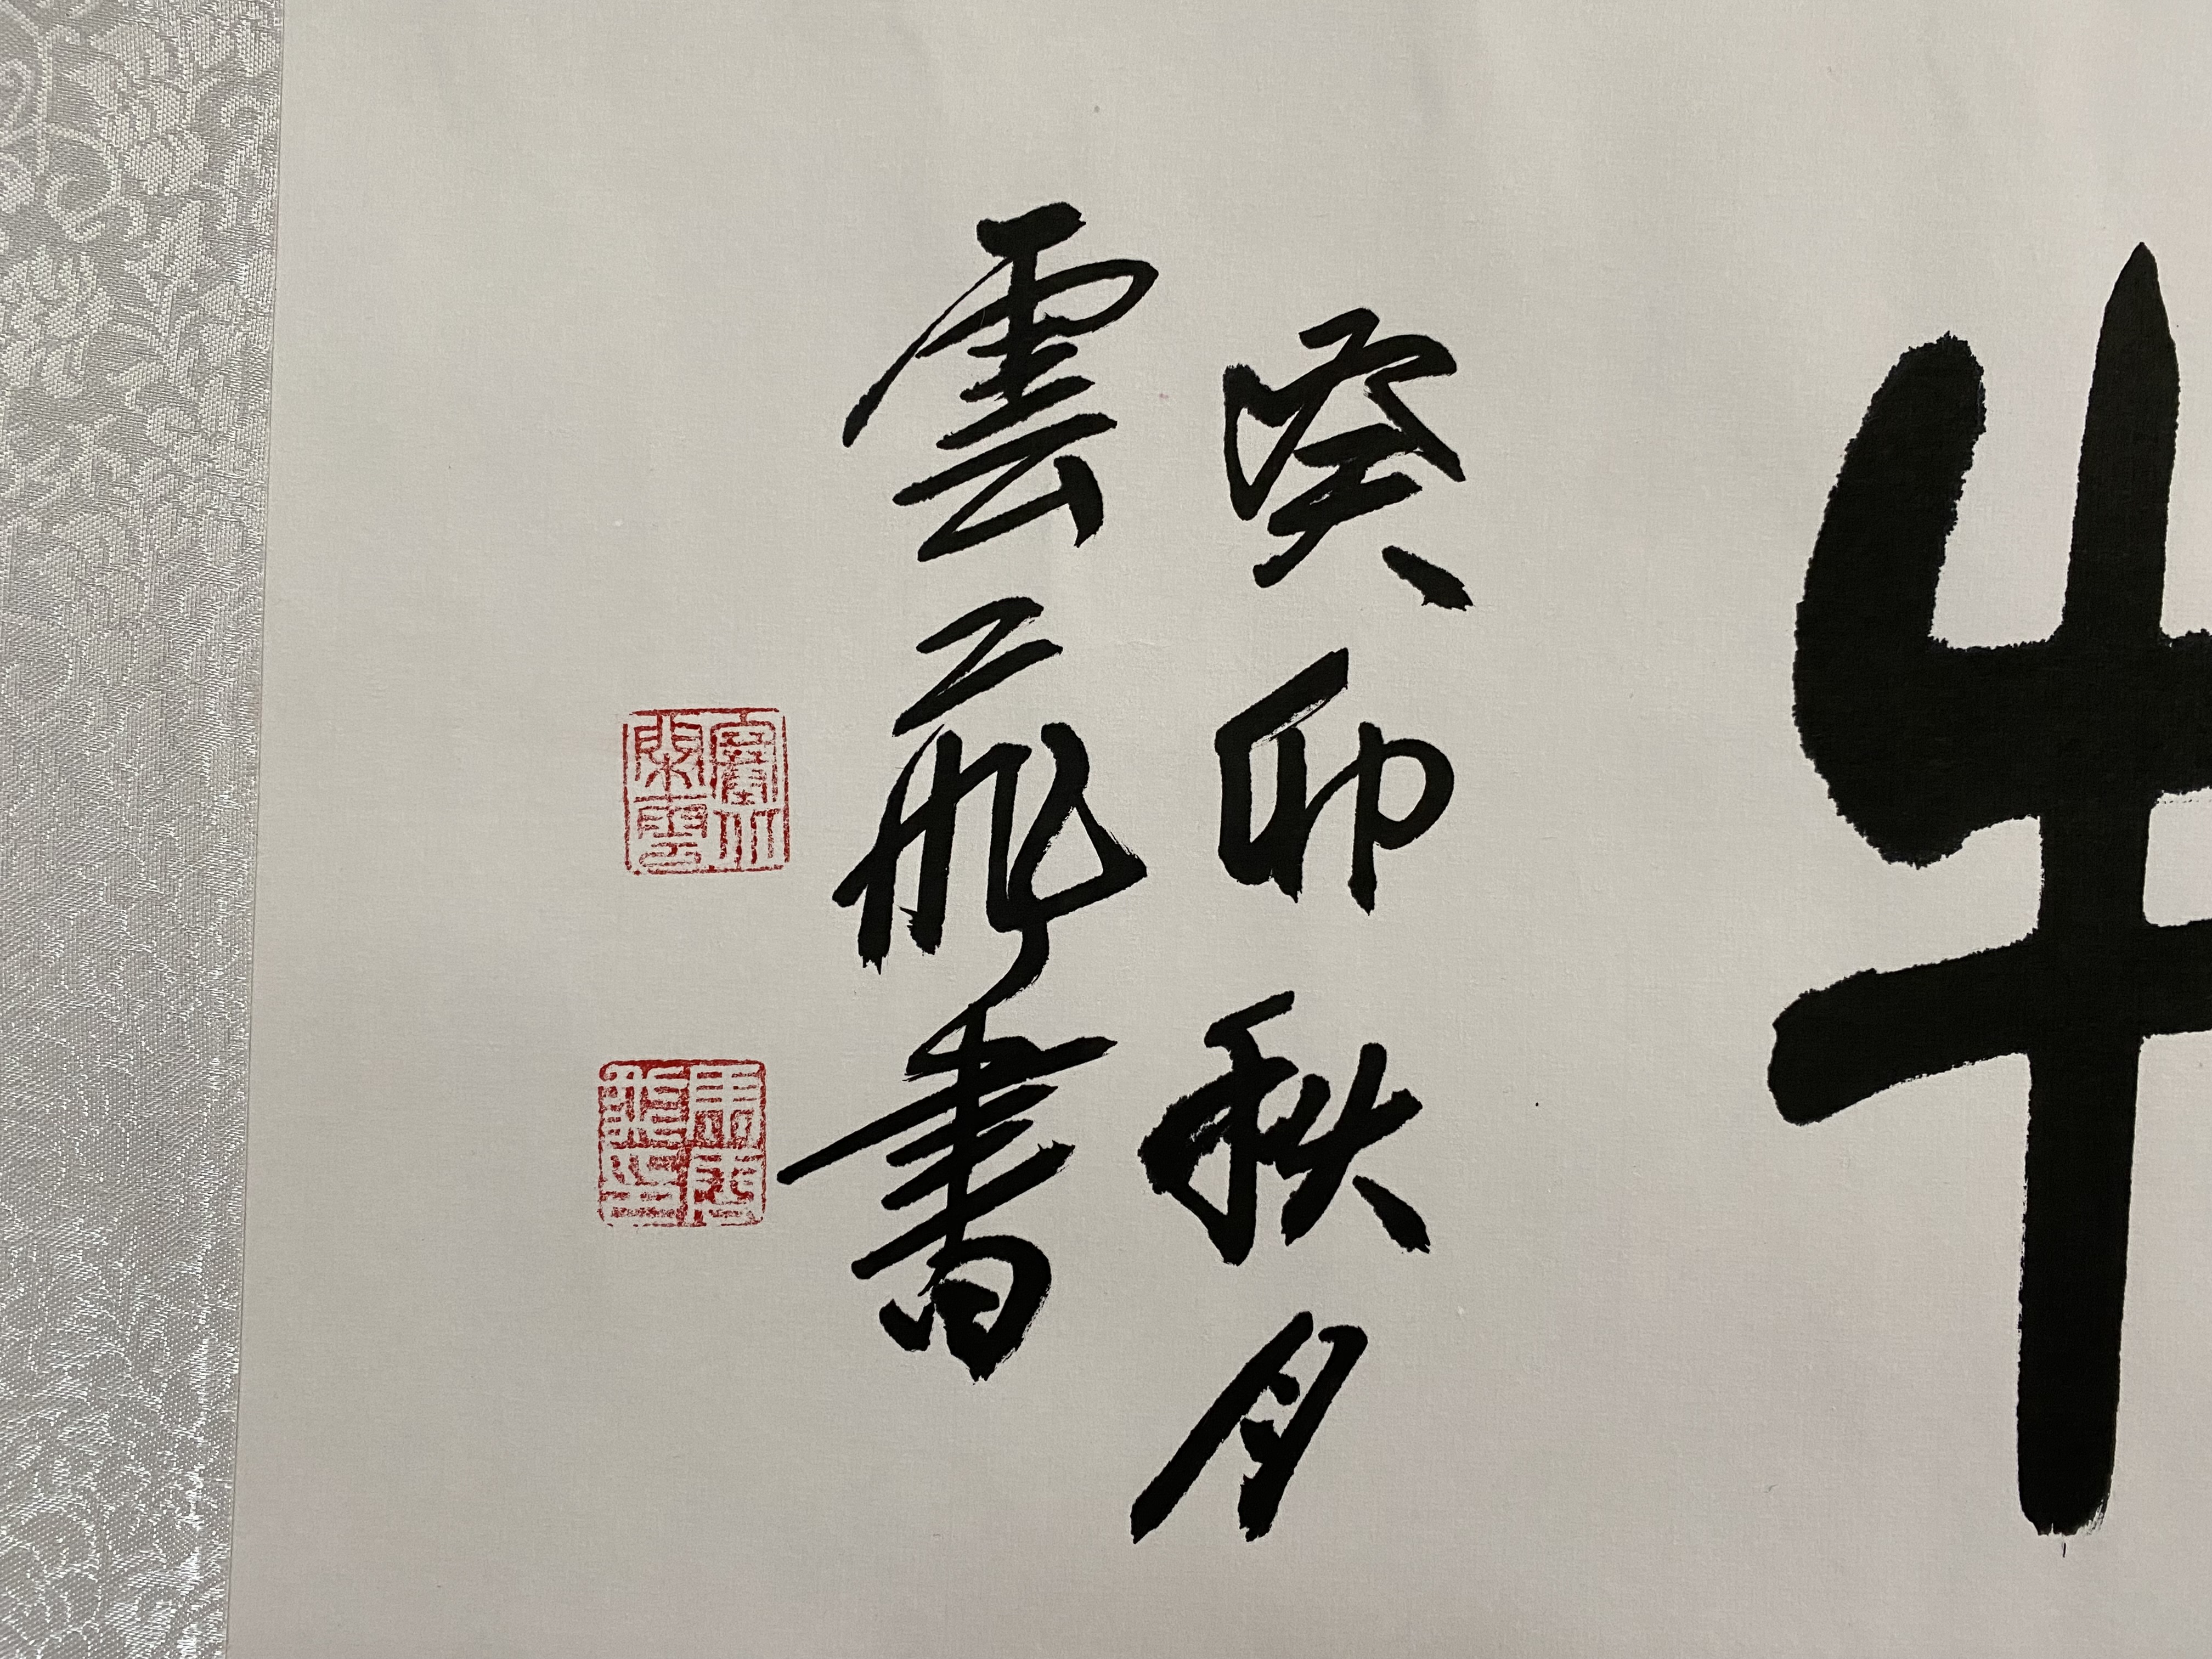 牛
癸卯秋月
雲飛書
閑雲